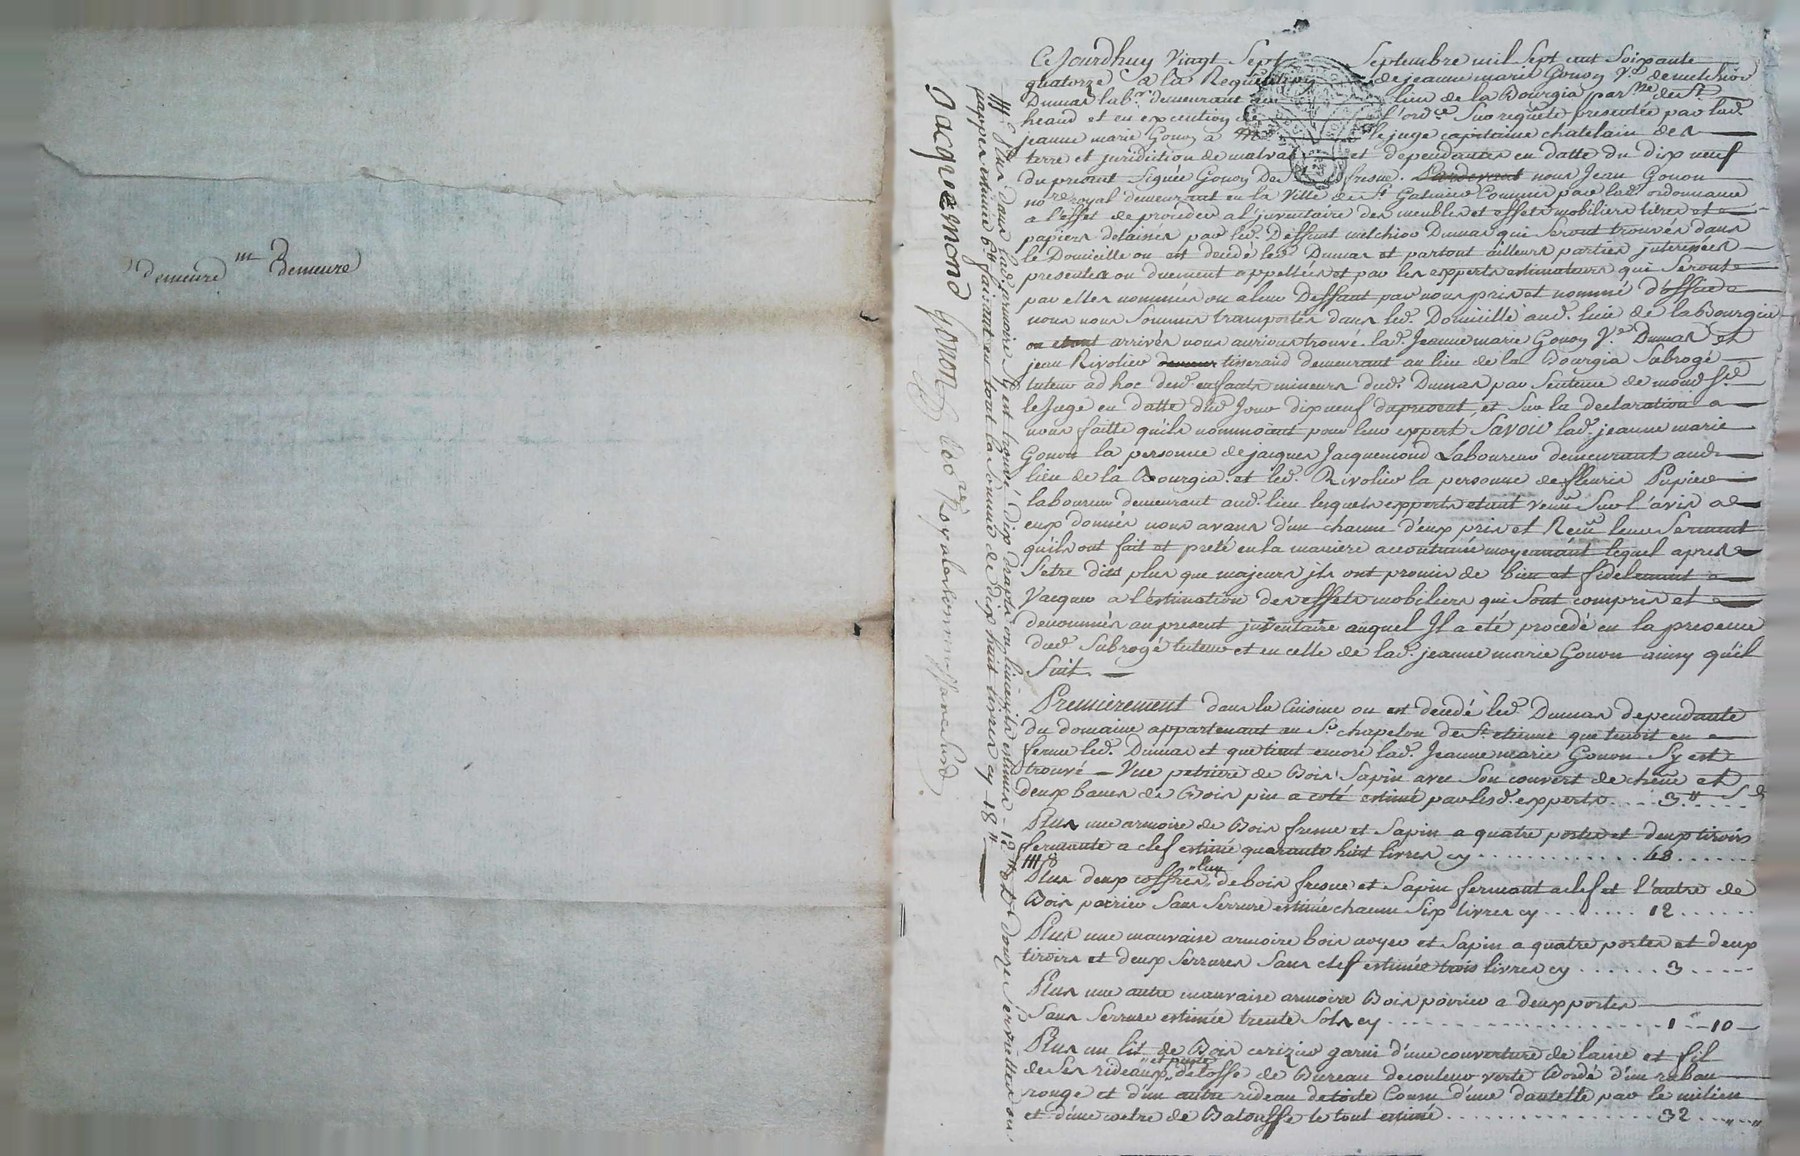 demeure m Demeure
Jacquemond Gonon No re Royal
///8 Plus dans lad. armoire S'y est trouvé dix draps ou linceuils estimés - 12 # et douze serviettes ou
nappes estimée 6 # faisant en tout la Somme de dix huit livres cy - 18 #
Ce Jourdhuy Vingt Sept Septembre mil Sept cent Soixante
quatorze a la Requ de jeanne marie Gonon Ve. de melchior
Dumas labr. demeurant au lieu de la Bourgia parsse de St.
heand et en execution de l'ordce Sur requête presentée par lad.
jeanne marie Gonon a le juge capitaine chatelain des
terre et juridiction de malval et dependances en datte du dix neuf
du present Signée Gonon Des fresne. nous Jean Gonon
nore royal demeurant en la Ville de St. Galmier Commis par lad. ordonnance
a l'effet de proceder a l'inventaire des meubles et effets mobiliers titres et
papiers delaissés par led. Deffunt melchior Dumas qui Seront trouvés dans
le Domicille ou est decedé led. Dumas et partout ailleurs parties interessées
presentes ou duement appellées et par les experts estimateurs qui Seront
par elles nommés ou a leur Deffaut par nous pris et nommé d'office
nous nous Sommes transportés dans led. Domicille aud. lieu de la Bourgia
ou etant arrivés nous aurions trouvé lad. Jeanne marie Gonon Ve. Dumas et
jean Rivolier tisserand demeurant au lieu de la Bourgia Subrogé
tuteur ad hoc des d. enfants mineurs dud. Dumas par Sentence de mond. Sr.
le Juge en datte dud. Jour dix neuf du present, et Sur la declaration a
nous faitte qu'ils nommoient pour leur expert Savoir lad. jeanne marie
Gonon la personne de jacques Jacquemond Laboureur demeurant aud.
lieu de la Bourgia. et led. Rivolier la personne de fleuris Pupier
laboureur demeurant aud. lieu lesquels experts etant venu Sur l'avis a
eux donnés nous avons d'un chacun d'eux pris et Reçu leur Serment
qu'ils ont fait et preté en la maniere accoutumée moyennant lequel apres
S'etre dits plus que majeurs ils ont promis de bien et fidelement
Vacquer a l'estimation des effets mobiliers qui Sont compris et
denommés au present inventaire auquel Il a eté procedé en la presence
dud. Subrogé tuteur et en celle de lad. jeanne marie Gonon ainsy qu'il
Suit.
Premierement dans la Cuisine ou est decedé led. Dumas dependante
du domaine appartenant au Sr. chapelon de St. etienne que tenoit en
ferme led. Dumas et que tient encore lad. Jeanne marie Gonon S'y est
trouvé - Une petriere de Bois Sapin avec Son couvert de chêne et
deux bancs de Bois pin a coté estimé par lesd. experts .... 3 # .....
Plus une armoire de Bois fresne et Sapin a quatre portes et deux tiroirs
fermante a clef estimé quarante huit livres cy ............ 48 .......
///8
Plus deux coffres l'un de bois fresne et Sapin fermant a clef et l'autre de
Bois poirier Sans Serrure estimé chacun Six livres cy ........ 12 ......
Plus une mauvaise armoire bois noyer et Sapin a quatre portes et deux
tiroirs et deux Serrures Sans clef estimée trois livres cy ...... 3 .....
Plus une autre mauvaise armoire Bois poirier a deux portes
Sans Serrure estimée trente Sols cy .................... 1 - 10 -
Plus un lit de Bois cerizier garni d'une couverture de laine et fil
de Ses rideaux et pente d'etoffe de Bureau de couleur verte Bordé d'un ruban
rouge et d'un autre rideau de toile Cousu d'une dantelle par le milieu
et d'une coetre de Balouffe le tout estimé ................ 32 .. " .. "